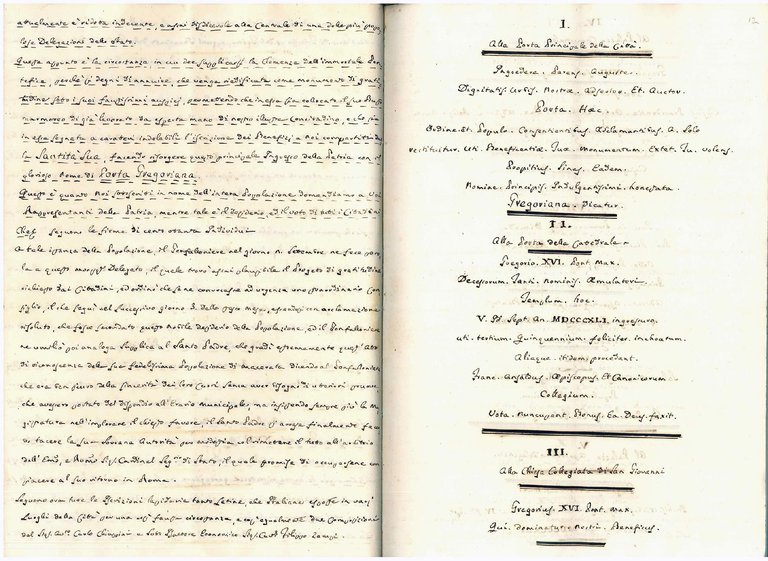 attualmente è ridotta indecente, e assai disdicevole alla Centrale di una delle più
lose Delegazioni dello Stato.
Questa appunto è la circostanza, in cui dee supplicarsi la Clemenza dell'immortale Pon-
tefice, perchè si degni di annuire, che venga riedificata come monumento di grati-
tudine sotto i suoi faustissimi auspicj, permettendo che in essa sia collocato il suo Busto
marmoreo di già lavorato da esperta mano di nostro illustre Concittadino, e che sia
in essa segnata a caratteri indelebili l'iscrizione dei Beneficj a noi compartiti
la Santità Sua, facendo risorgere questo principale Ingresso della Patria con il
glorioso Nome di Porta Gregoriana.
Questo è quanto Noi sottoscritti in nome dell'intera Popolazione domandiamo a Voi
Rappresentanti della Patria, mentre tale è il desiderio, ed il voto di tutti i Cittadini
Seguono le firme di cento ottanta Individui
A tale istanza della Popolazione il Gonfaloniere nel giorno Settembre ne fece
la a questo Delegato, il quale trovò assai plausibile il Progetto di gratitudine
richiesto dai Cittadini, ed ordinò che se ne convocasse ad urgenza uno straordinario Con-
siglio, il che seguì nel successivo giorno 3. dello stesso mese, essendosi con acclamazione
risoluto, che fosse secondato questo nobile desiderio della Popolazione, ed il Gonfaloniere
ne umiliò poi analoga Supplica al Santo Padre, che gradì estremamente quest'Atto
di riconoscenza della sua fedelissima Popolazione di Macerata dicendo al Gonfaloniere
che era ben sicuro della sincerità dei loro Cuori senza aver bisogno di ulteriori prove
che avessero portato del dispendio all'Erario municipale, ma insistendo sempre più la Ma-
gistratura nell'implorare il chiesto favore, il Santo Padre si arrese finalmente
di tacere la sua Sovrana Autorità per modestia col rimettere il tutto all'arbitrio
dell'Emo, e Rmo Sig. Cardinal Seg.rio di Stato, il quale promise di occuparsene con
piacere al suo ritorno in Roma.
Seguono ora tutte le Iscrizioni lapidarie tanto Latine, che Italiane esposte in varj
Luoghi della Città per una sì fausta circostanza, e così egualmente due Composizioni
del Sig. Carlo e Filippo
12
I.
Alla Porta Principale della Città.
Ingredere. Parens. Auguste.
Dignitatis. Urbis. Nostræ. Adsertor. Et. Auctor.
Porta. Hæc.
Ordine. Et. Populo. Consentientibus. Adclamantibus. A. Solo
restituitur. Uti. Beneficentiæ. Tuæ. Monumentum. Extet. Tu. Volens.
Propitius. Sines. Eadem.
Nomine. Principis. Indulgentissimi. honestata.
Gregoriana. Dicatur.
II.
Alla Porta della Cattedrale
Gregorio. XVI. Pont. Max.
Decessorum. Tanti. Nominis. Æmulatori
Templum. hoc.
V. Sept. An. MDCCCXLI. ingressuro.
uti. tertium. Quinquennium. feliciter. inchoatum.
Aliaque. itidem. provehant.
Franc. Ansaldus. Episcopus. Et Canonicorum
Collegium.
Vota. Nuncupant. Bonus. Ea. Deus. faxit.
III.
Alla Chiesa Collegiata di San Giovanni
Gregorius. XVI. Pont. Max.
Qui. dominatur. nostri. Beneficus.